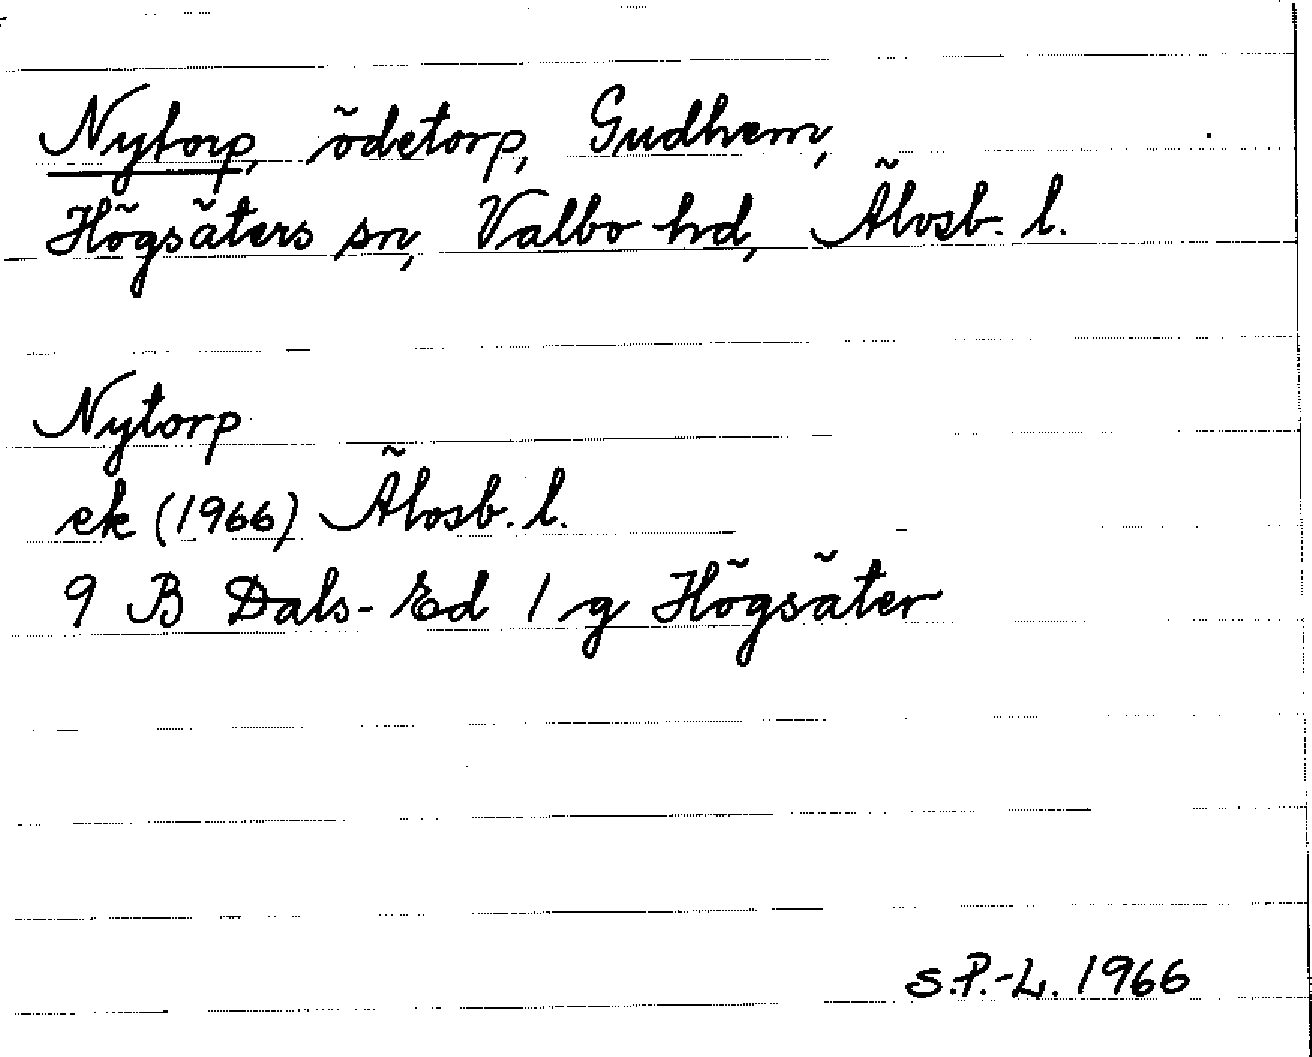 Nytorp, ödetorp, Gudhem,
Högsäters sn, Valbo hd, Älvsb. l.
Nytorp
ek (1966) Älvsb. l.
9 B Dals-Ed 1 g Högsäter
S.P.-L. 1966